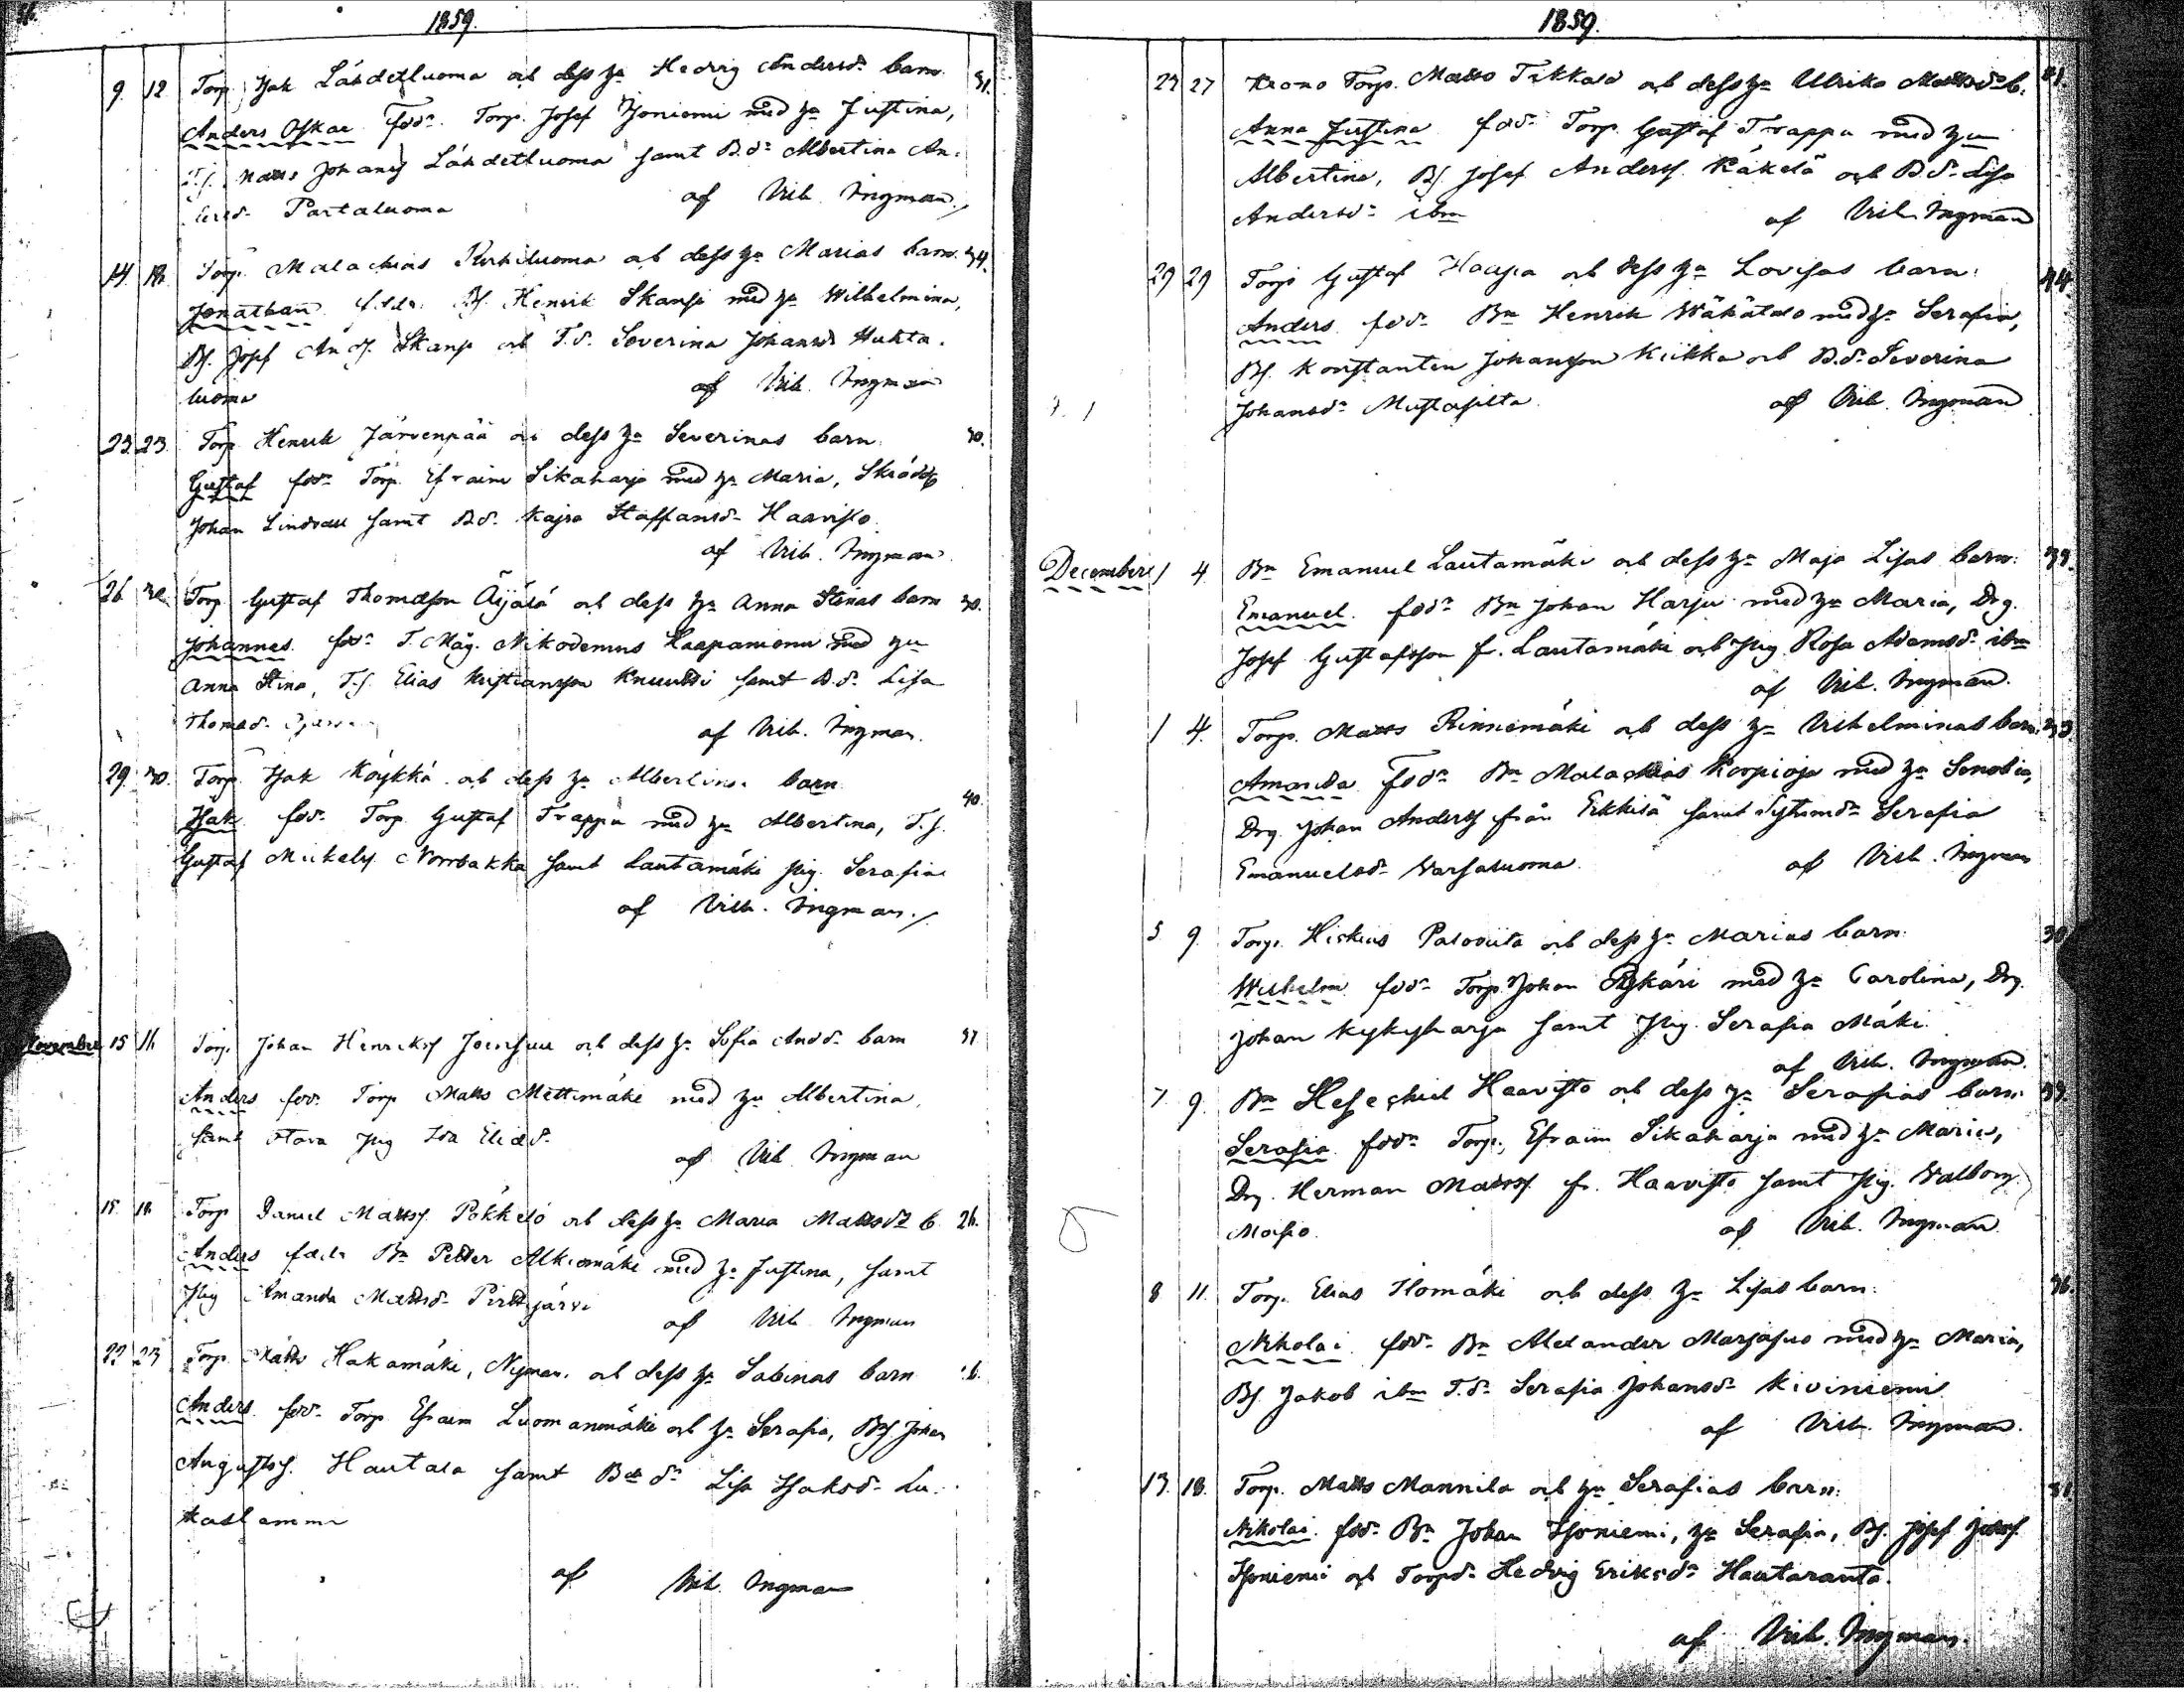 1859.
9. 12 Torp. Isak Lähdetluoma och dess hu Hedvig Andersdr barn. 31.
Anders Oskar föddr. Torp. Josef Isoniemi med hu Justina,
T.s. Matts Johans Lähdetluoma samt B.dr Albertina An-
dersdr Partaluoma af Vilh. Ingman
14. 18. Torp. Malachias Kuhiluoma och dess hu Marias barn. 34.
Jonathan. föddr. Bs. Henrik Skansi med hu Wilhelmina,
Bs. Josef And.s. Skansi och T.dr. Severina Johansdr Huhta-
luoma af Vilh. Ingman
23. 23. Torp. Henrik Järvenpää och dess hu Severinas barn. 30.
Gustaf föddr Torp. Efraim Sikaharju med hu Maria, Skrädd.
Johan Lindvall samt B.dr. Kajsa Staffansdr Haavisto.
af Vilh. Ingman.
26. 30. Torp Gustaf Thomasson Äijälä och dess hu Anna Stinas barn 30.
Johannes. föddr T. Måg. Nikodemus Haapaniemi med hu
Anna Stina, T.s. Elias Kristiansson Knuutti samt B.dr. Lisa
Thomasdr af Vilh. Ingman.
29. 30. Torp. Isak Köykkä och dess hu Albertinas barn 40.
Isak föddr. Torp. Gustaf Trappu med hu Albertina, T.s.
Gustaf Mickels. Norrbakka samt Lautamäki pig. Serafia
af Vilh. Ingman.
November 15 16 Torp. Johan Henrikss Joensuu och dess hu Sofia Andrdr barn 37
Anders föddr. Torp Matts Mettimäki med hu Albertina,
samt Otava pig Ida Eliædr.
af Vilh Ingman
15. 18. Torp Daniel Mattss. Pökkelö och dess hu Maria Mattsdr b. 26.
Anders föddr Bn Petter Alkiomäki med hu Justina, samt
pig Amanda Mattsdr Pirttijärvi af Vilh Ingman
22 23 Torp. Matts Hakamäki, Nyman, och dess hu Sabinas barn
Anders. föddr. Torp. Efraim Luomanmäki och hu Serafia, Bs. Johan
Augustss. Hautala samt B dr Lisa Isaksdr Lu-
kaslammi
af Vilh. Ingman
1859.
27 27 Krono Torp. Matts Tikkala och dess hu Ulrika Mattsdr b. 41.
Anna Justina föddr Torp. Gustaf Trappu med hu
Albertina, Bs. Josef Anderss. Käkelä och B.dr Lisa
Andersdr ibm af Vilh Ingman
29 29 Torp Gustaf Haapa och dess hu Lovisas barn. 44.
Anders. föddr Bn Henrik Wähätalo med hu Serafia,
Bs. Konstantin Johansson Kiikka och B.dr Severina
Johansdr Mustasilta. af Vilh. Ingman
December 1 4 Bn Emanuel Lautamäki och dess hu Maja Lisas barn. 39.
Emanuel. föddr Bn Johan Harju med hu Maria, Drg.
Josef Gustafsson fr. Lautamäki och pig Rosa Adamsdr ibm
af Vilh. Ingman.
1 4. Torp. Matts Rinnemäki och dess hu Vilhelminas barn. 33
Amanda. föddr Bn Malachias Korpioja med hu Senobia,
Drg. Johan Anderss från Erkkilä samt Sytnmdr Serafia
Emanuelsdr Varsaluoma. af Vilh. Ingman
5 9. Torp. Hiskias Paloviita och dess hu Marias barn. 30
Wilhelm. föddr Torp. Johan Pykäri med hu Carolina, Drg.
Johan Kykyharju samt pig. Serafia Mäki.
af Vilh. Ingman.
7. 9. Bn Hesechiel Haavisto och dess hu Serafias barn. 33.
Serafia. föddr Torp. Efraim Sikaharju med hu Maria,
Drg. Herman Mattss. fr. Haavisto samt pig. Valborg
Masio. af Vilh. Ingman
8 11. Torp. Elias Ilomäki och dess hu Lisas barn. 36.
Nikolai. föddr Bn Alexander Marjasuo med hu Maria,
Bs. Jakob ibm T.dr Serafia Johansdr Kiviniemi.
af Vilh. Ingman.
13. 18. Torp. Matts Mannila och hu Serafias barn.
Nikolai. föddr Bn Johan Isoniemi, hu Serafia, Bs. Josef Josefs.
Isoniemi och Torpdr Hedvig Eriksdr Hautaranta.
af Vilh. Ingman.